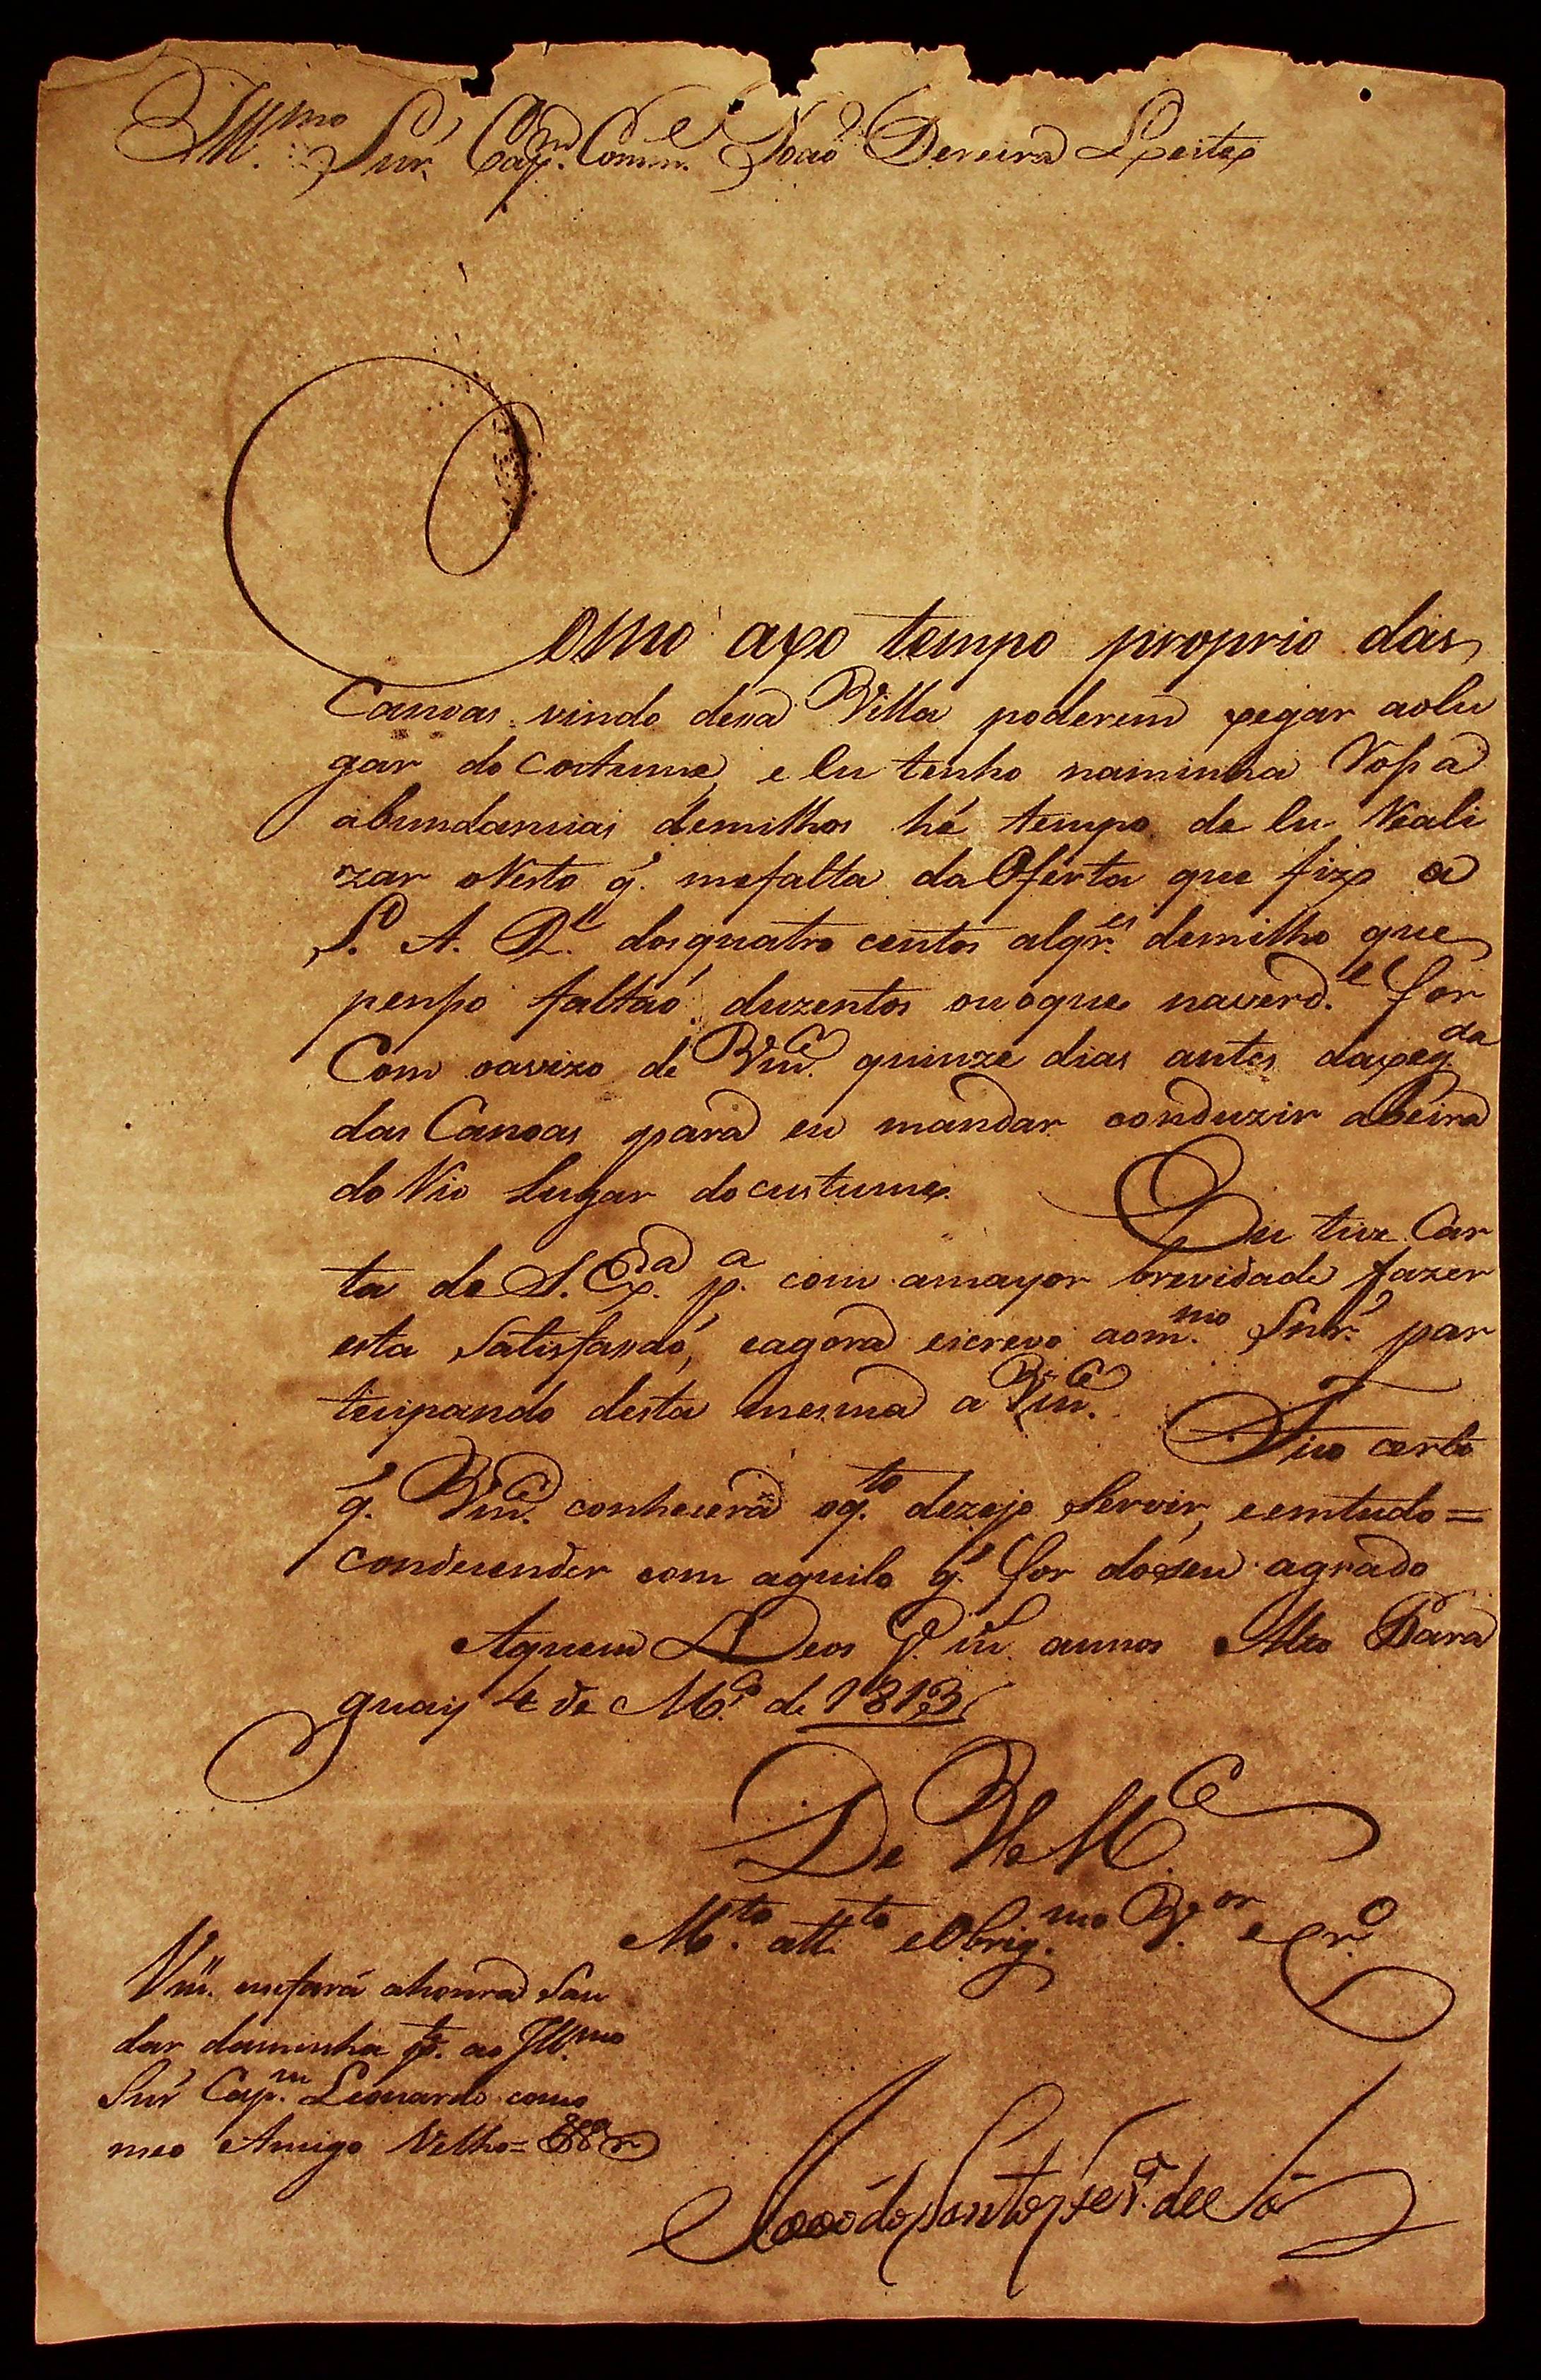 Ill.mo Snr. Cap.m Comm.e João Pereira Leite
Como axo tempo proprio das
Canoas vindo desa Villa poderem xegar aolu
gar do Costume, e Eu tenho naminha Rossa
abundancias demilhos hé tempo de Eu Reali
zar oResto q. mefalta daOferta que fiz a
S. A. R.l dosquatro centos alqr.es demilho que
pensso faltaó duzentos ouoque naverd.e for
Com oavizo de Vm.ce quinze dias antes daxeg.da
das Canoas para eu mandar conduzir abeira
do Rio Lugar docustume.
Eu tive Car
ta de S. Ex.a p.a com amayor brevidade fazer
esta Satisfasaó, eagora escrevo aom.mo Snr. par
ticipando desta mesma a Vm.ce
Fico certo
q. Vm.ce conhecerá oq.to dezejo Servir, eemtudo=
condecender com aquilo q. for doseu agrado
Aquem Deos G.e m.s annos Alto Para
guay 4 de M.ço de 1813
De VMce
M.to att.to eObrig.mo V.or e Cr.o
Vm. mefará ahonra Sau
dar daminha p.te ao Ill.mo
Snr Cap.m Leonardo como
meo Amigo Velho=
Joaó dos Santos Fer.a de